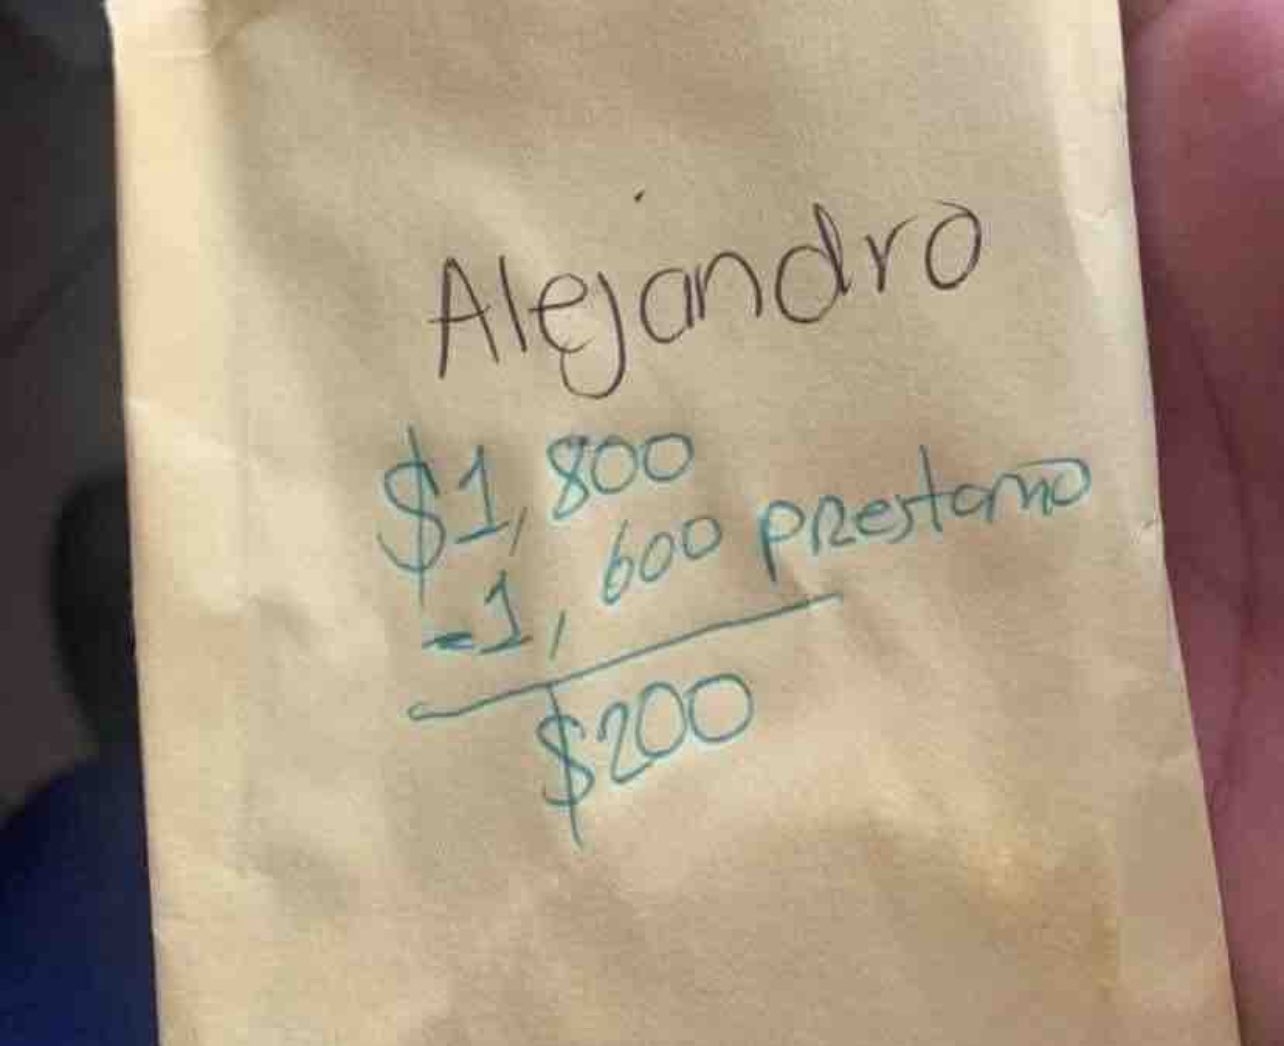 Alejandro
$1,800
-1,600 prestamo
$200